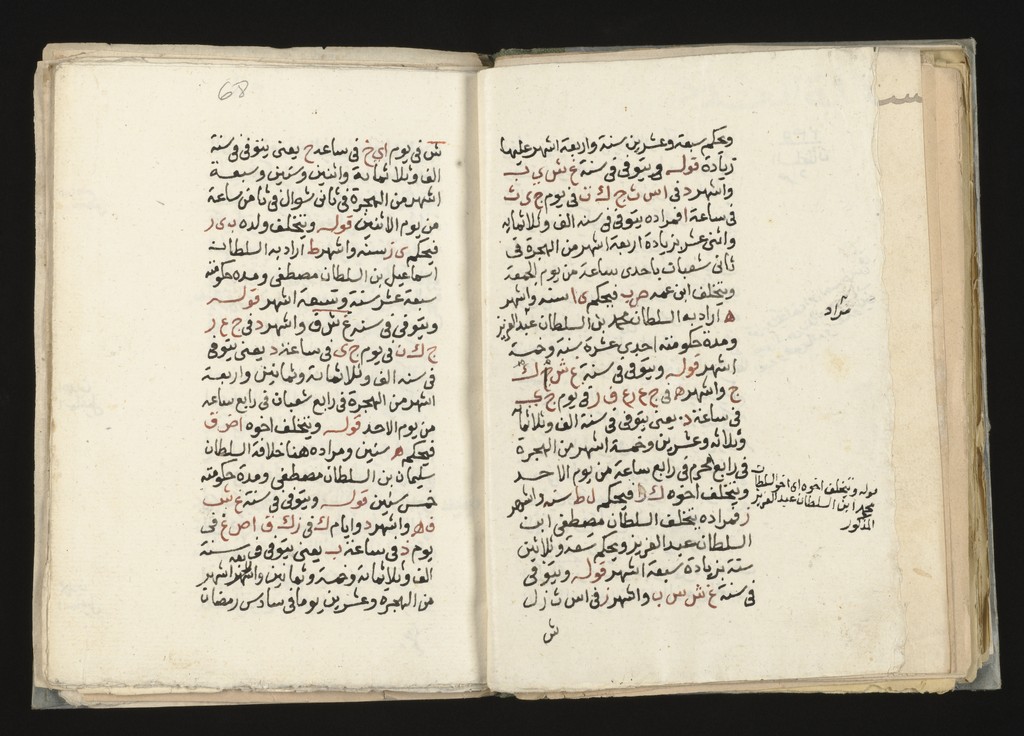 ويحكم سبعة وعشرين سنة واربعة اشهر عليها
زيادة قوله ويتوفى في سنة غ ش ي ب
واشهر د في اس ث ج ك ن في يوم ج ي ث
في ساعة ا فمراده يتوفى في سنه الف وثلاثمائه
واثني عشر بزيادة اربعة اشهر من الهجرة في
ثاني شعبان باحدى ساعة من يوم الجمعة
ويتخلف ابن عمه ص ب فيحكم ي ا سنه واشهر
ه اراد به السلطان محمد بن السلطان عبد العزيز
ومدة حكومته احدى عشرة سنة وخمسة
اشهر قوله ويتوفى في سنة غ ش ك
ج واشهر ه في ج ع ر ع ف ر في يوم ج ي
في ساعة د يعني يتوفى في سنة الف وثلاثمائة
وثلاثه وعشرين وخمسة اشهر من الهجرة
في رابع المحرم في رابع ساعة من يوم الاحد
ويتخلف اخوه ك ا فيحكم ل ط سنه واشهر
ز فمراده يتخلف السلطان مصطفى ابن
السلطان عبد العزيز ويحكم تسعة وثلاثين
سنة بزيادة سبعة اشهر قوله ويتوفى
في سنة غ ش س ب واشهر ز في اس ث ز ل
ش
مراد
قوله ويتخلف اخوه اي اخو السلطان
محمد ابن السلطان عبد العزيز
المذكور
68
ش في يوم اي خ في ساعه ح يعني يتوفى في سنة
الف وثلاثمائة واثنين وستين وسبعة
اشهر من الهجرة في ثاني شوال في ثامن ساعة
من يوم الاثنين قوله ويتخلف ولده ب ي ر
فيحكم ي ز سنه واشهر ط اراد به السلطان
اسماعيل بن السلطان مصطفى ومدة حكومته
سبعة عشر سنة وتسعة اشهر قوله
ويتوفى في سنه غ ش ف واشهر د في ج ع ر
ج ك ن في يوم ج ي في ساعة د يعني يتوفى
في سنه الف وثلاثمائة وثمانين واربعة
اشهر من الهجرة في رابع شعبان في رابع ساعه
من يوم الاحد قوله ويتخلف اخوه اص ق
فيحكم ه سنين ومراده هنا خلافة السلطان
سليمان بن السلطان مصطفى ومدة حكومته
خمس سنين قوله ويتوفى في سنة غ ش
ف ه واشهر د وايام ك في ز ك ق اص غ في
يوم د في ساعة ب يعني يتوفى في سنة
الف وثلاثمائة وخمسة وثمانين واربعة اشهر
من الهجرة وعشرين يوما في سادس رمضان